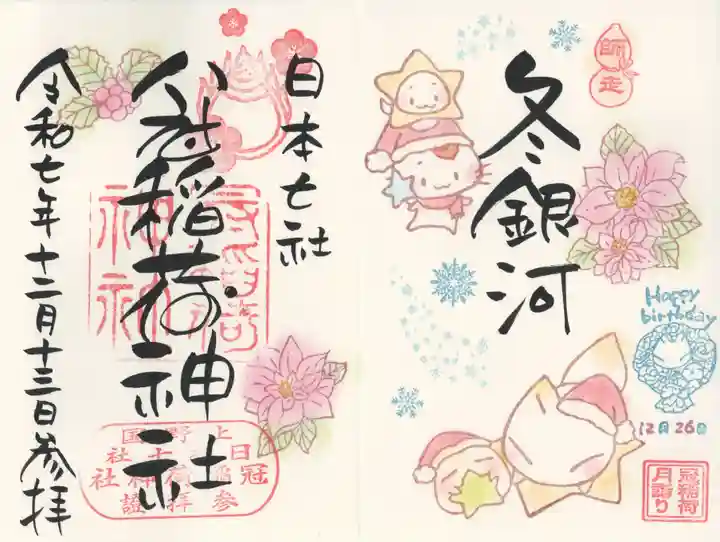 師走
冬銀河
Happy
birthday
12月26日
冠稲荷
月詣り
日本七社
冠稲荷神社
令和七年十二月十三日参拝
上野国
冠稲荷神社
参拝證